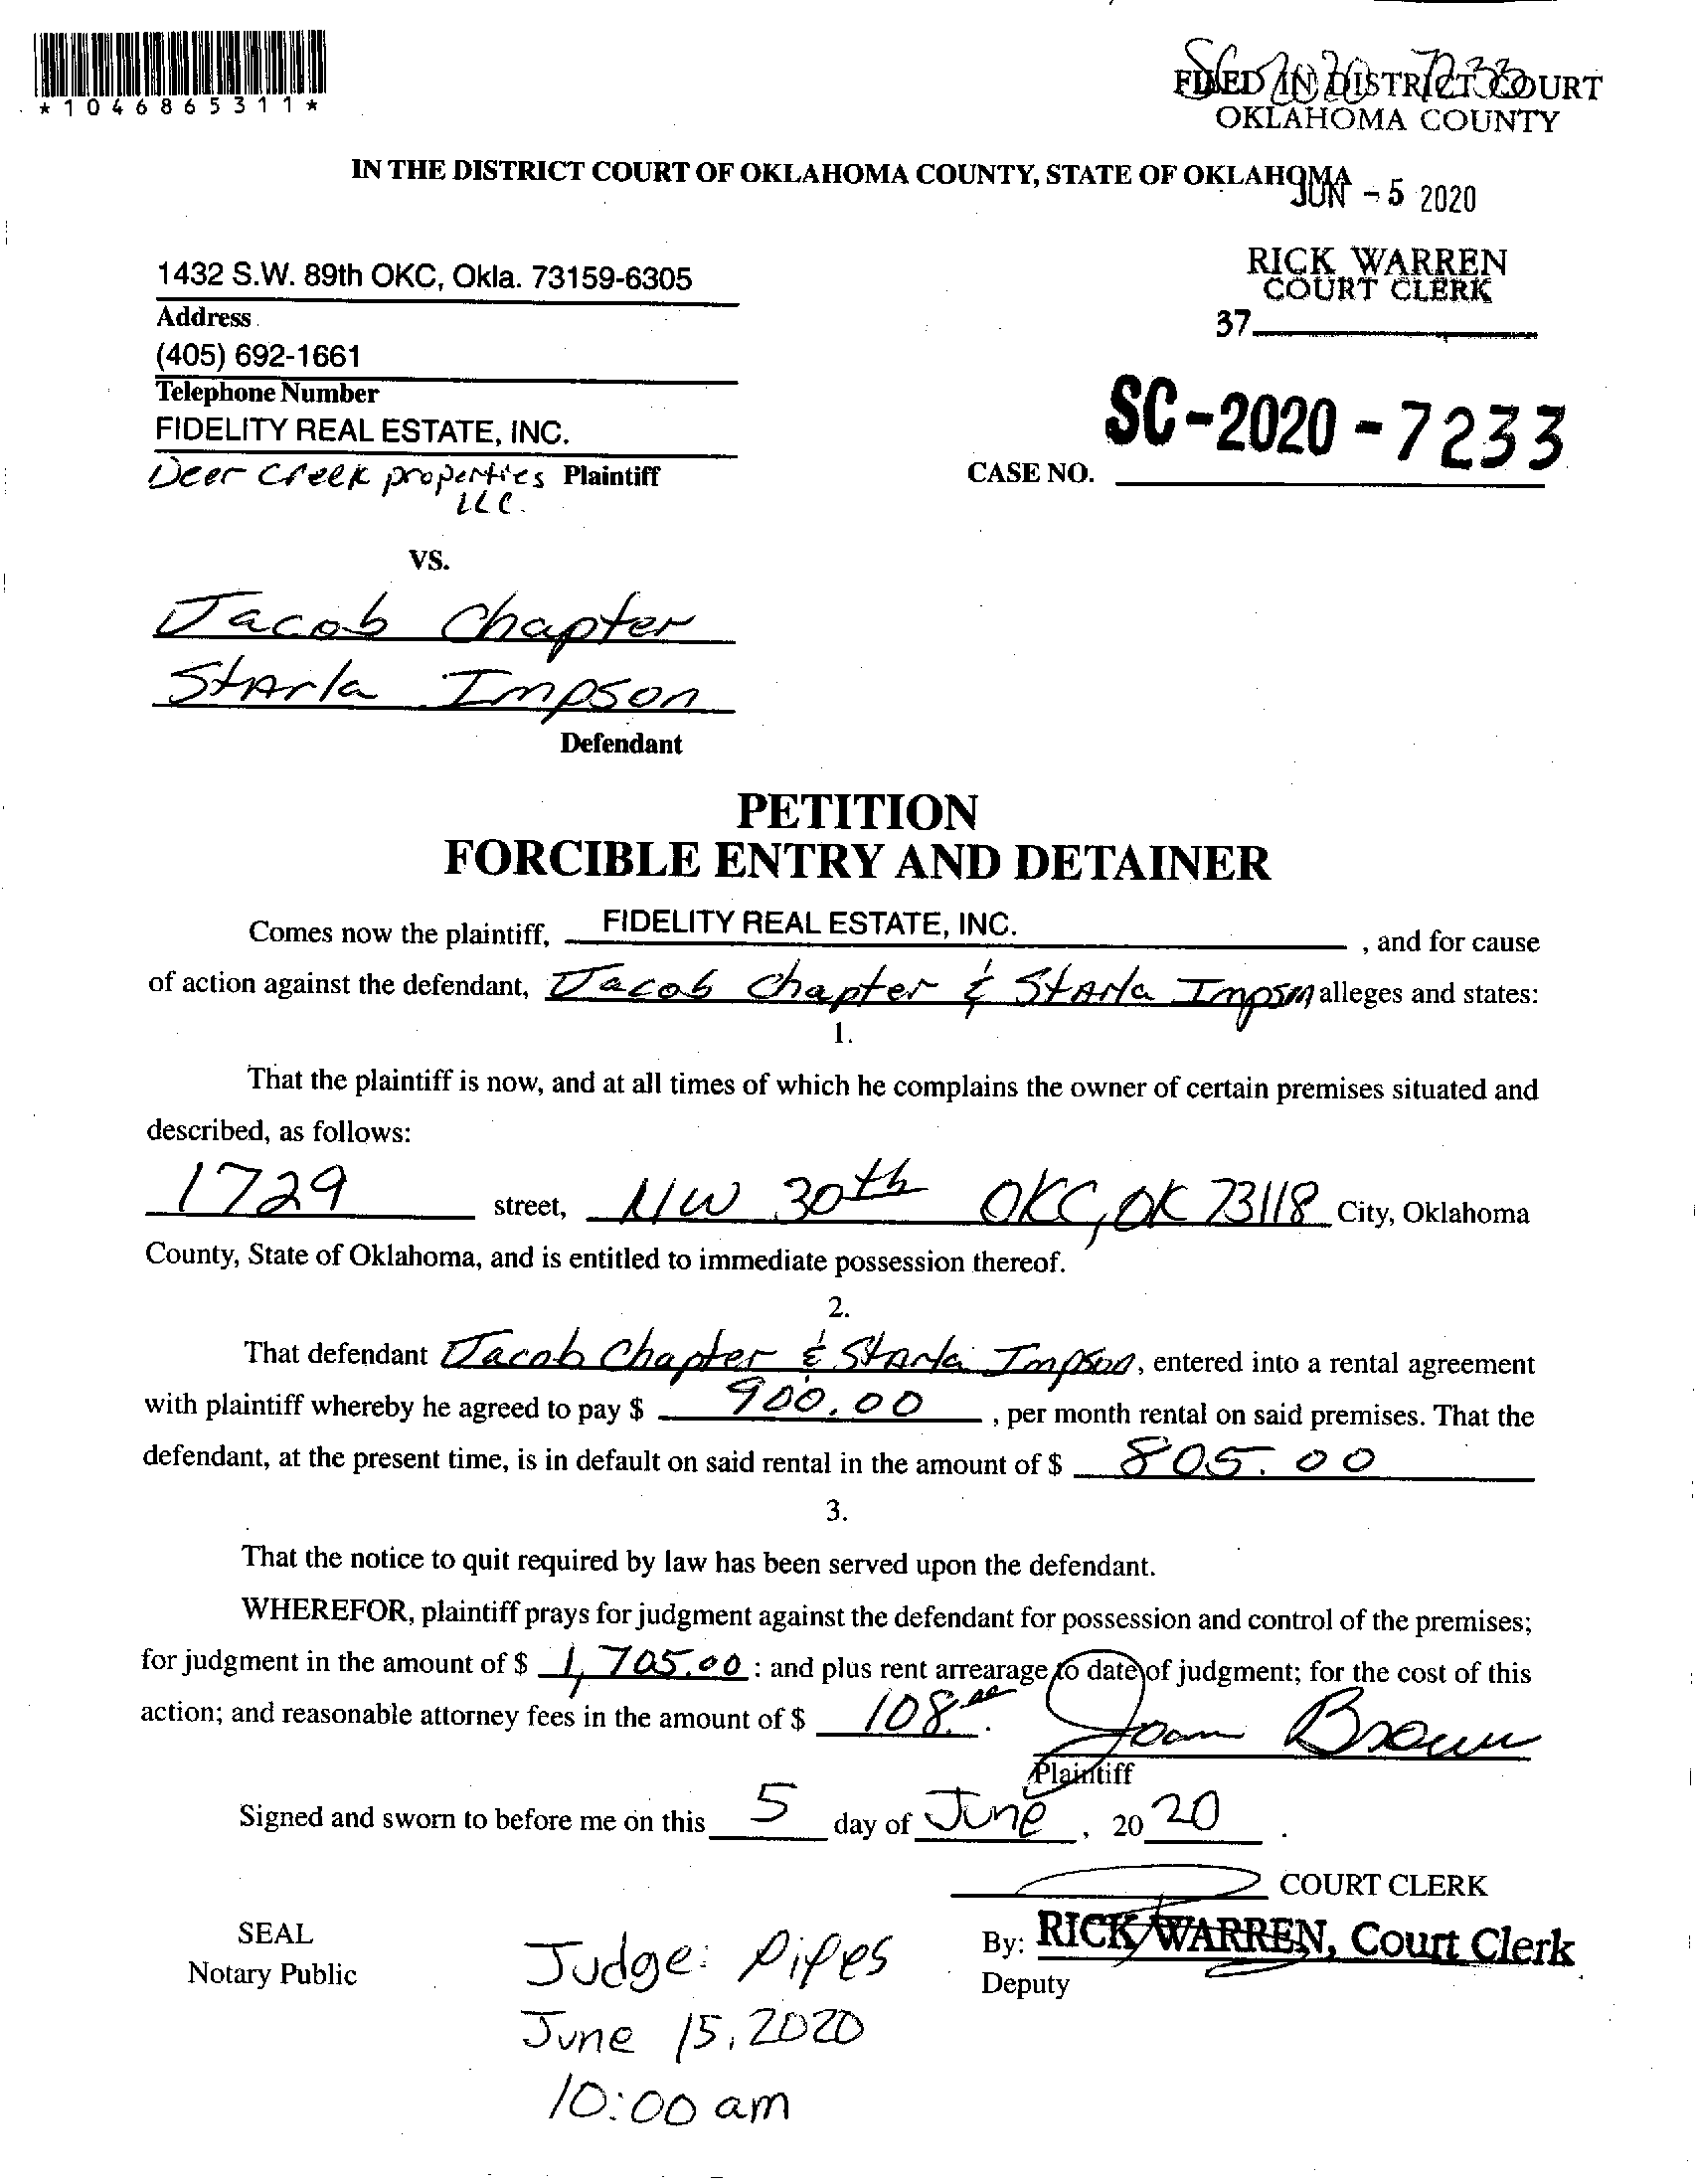 *1046865311*
SC 2020 7233
FILED IN DISTRICT COURT
OKLAHOMA COUNTY
IN THE DISTRICT COURT OF OKLAHOMA COUNTY, STATE OF OKLAHOMA
JUN -5 2020
1432 S.W. 89th OKC, Okla. 73159-6305
Address
(405) 692-1661
Telephone Number
FIDELITY REAL ESTATE, INC.
Deer Creek properties Plaintiff
LLC.
RICK WARREN
COURT CLERK
37
SC-2020-7233
CASE NO.
VS.
Jacob Chapter
Starla Impson
Defendant
PETITION
FORCIBLE ENTRY AND DETAINER
Comes now the plaintiff, FIDELITY REAL ESTATE, INC. , and for cause
of action against the defendant, Jacob Chapter & Starla Impson alleges and states:
1.
That the plaintiff is now, and at all times of which he complains the owner of certain premises situated and
described, as follows:
1729 street, NW 30th OKC, OK 73118 City, Oklahoma
County, State of Oklahoma, and is entitled to immediate possession thereof.
2.
That defendant Jacob Chapter & Starla Impson, entered into a rental agreement
with plaintiff whereby he agreed to pay $ 900.00 , per month rental on said premises. That the
defendant, at the present time, is in default on said rental in the amount of $ 805.00
3.
That the notice to quit required by law has been served upon the defendant.
WHEREFOR, plaintiff prays for judgment against the defendant for possession and control of the premises;
for judgment in the amount of $ 1,705.00 : and plus rent arrearage to date of judgment; for the cost of this
action; and reasonable attorney fees in the amount of $ 108.00.
Joan Brown
Plaintiff
Signed and sworn to before me on this 5 day of June , 20 20 .
COURT CLERK
SEAL
Notary Public
By: RICK WARREN, Court Clerk
Deputy
Judge: Pipes
June 15, 2020
10:00 am